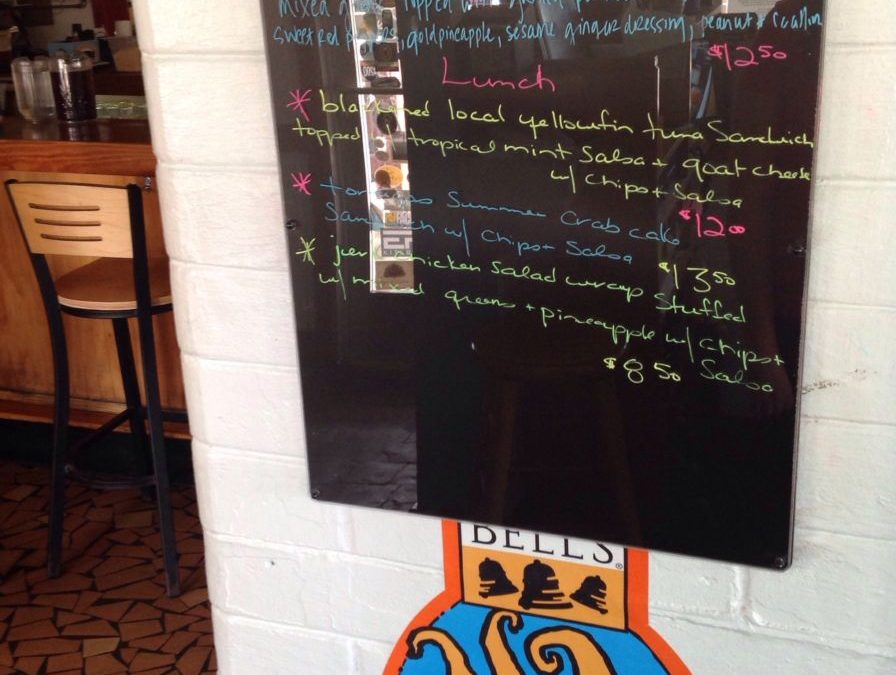 mixed topped
sweet red peppers, gold pineapple, sesame ginger dressing, peanuts + scallion
$12 50
Lunch
* blackened local yellowfin tuna Sandwich
topped w/ tropical mint Salsa + goat cheese
w/ chips + Salsa
$12 00
* Summer Crab cake
Sandwich w/ chips + Salsa
$13 50
* jerk chicken Salad wrap Stuffed
w/ mixed greens + pineapple w/ chips +
$8 50 Salsa
BELL'S